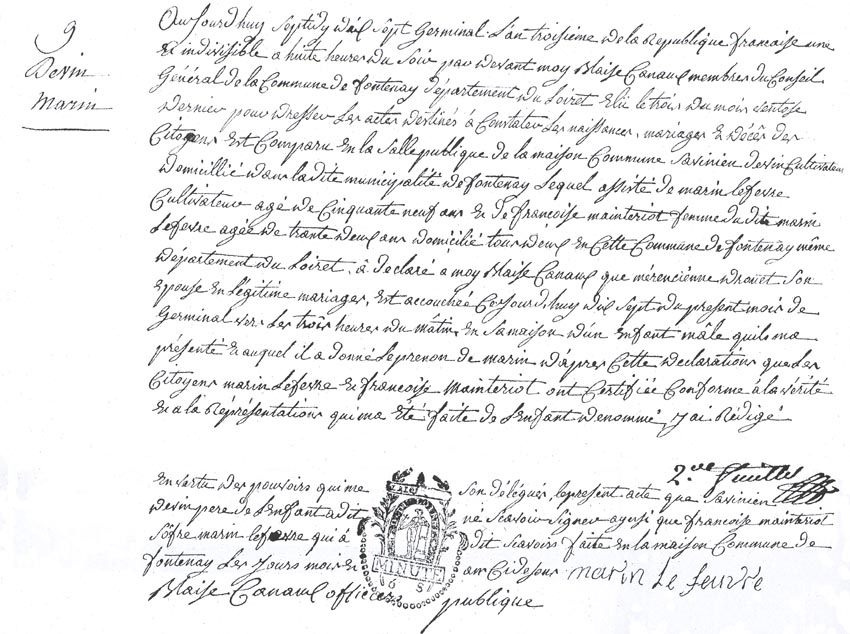 9
Devin
Marin
Aujourd'huy Septidy dix Sept Germinal L'an troisieme de la Republique francaise une
& indivisible a huite heures du Soir par devant moy Blaise Canaux membres du Conseil
Général de la Commune de fontenay département du Loiret Elü le trois du mois ventose
dernier pour dresser Les actes destinés à Constater Les naissances, mariages & décès des
Citoyens Est Comparu En la Salle publique de la maison Commune Savinien devin Cultivateur
domicillié dans la dite municipalité de fontenay Lequel assisté de marin lefevre
Cultivateur agé de Cinquante neuf ans & de francoise mainteriot femme du dit marin
Lefevre agée de trante deux ans domicilié tous deux En Cette Commune de fontenay même
département du Loiret, à déclaré a moy Blaise Canaux que mérencienne drouet Son
Epouse En Légitime mariages, Est accouchée Ce Jourd,huy dix Sept du present mois de
Germinal vers Les trois heures du matin En Sa maison d'un Enfant mâle quils ma
présenté & auquel il a donné Le prenon de marin d'après Cette déclarations que Les
Citoyens marin Lefevre & francoise Mainteriot ont Certifiée Conforme à la vérité
& a la Réprésentations qui ma Eté faite de L'Enfant denommé, J'ai Rédigé
2.ve feuille
En vertu des pouvoirs qui me son délégués, le present acte que Savinien
devin pere de L'Enfant a dit né Scavoir Signer aynsi que francoise mainteriot
marin lefevre qui à dit Scavoirs faite En la maison Commune de
fontenay Les Jours mois & an Cidesus marin Le feuvre
MINUTE
Blaise Canaux officiers publique